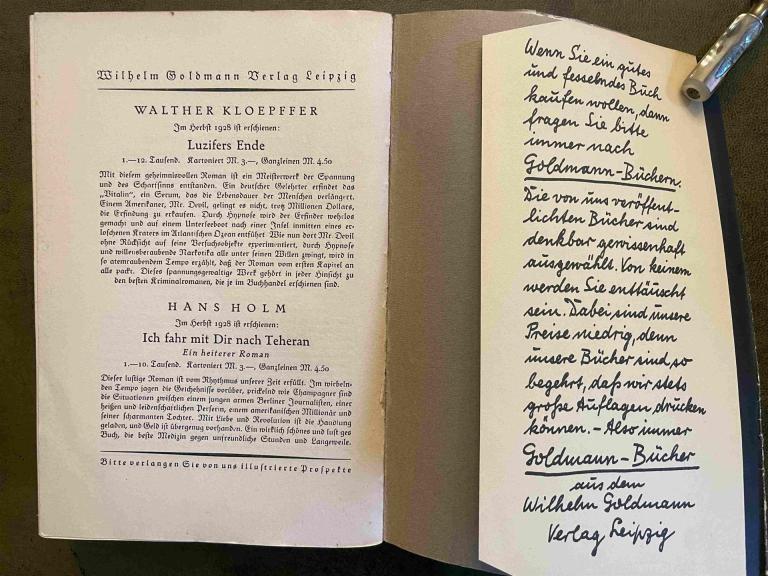 Wilhelm Goldmann Verlag Leipzig
WALTHER KLOEPFFER
Im Herbst 1928 ist erschienen:
Luzifers Ende
1.—12. Tausend. Kartoniert M. 3.—, Ganzleinen M. 4.50
Mit diesem geheimnisvollen Roman ist ein Meisterwerk der Spannung
und des Scharfsinns entstanden. Ein deutscher Gelehrter erfindet das
„Vitalin“, ein Serum, das die Lebensdauer der Menschen verlängert.
Einem Amerikaner, Mr. Devil, gelingt es nicht, trotz Millionen Dollars,
die Erfindung zu erkaufen. Durch Hypnose wird der Erfinder wehrlos
gemacht und auf einem Unterseeboot nach einer Insel inmitten eines er-
loschenen Kraters im Atlantischen Ozean entführt. Wie nun dort Mr. Devil
ohne Rücksicht auf seine Versuchsobjekte experimentiert, durch Hypnose
und willensberaubende Narkotika alle unter seinen Willen zwingt, wird in
so atemraubendem Tempo erzählt, daß der Roman vom ersten Kapitel an
alle packt. Dieses spannungsgewaltige Werk gehört in jeder Hinsicht zu
den besten Kriminalromanen, die je im Buchhandel erschienen sind.
HANS HOLM
Im Herbst 1928 ist erschienen:
Ich fahr mit Dir nach Teheran
Ein heiterer Roman
1.—10. Tausend. Kartoniert M. 3.—, Ganzleinen M. 4.50
Dieser lustige Roman ist vom Rhythmus unserer Zeit erfüllt. Im wirbeln-
den Tempo jagen die Geschehnisse vorüber, prickelnd wie Champagner sind
die Situationen zwischen einem jungen armen Berliner Journalisten, einer
heißen und leidenschaftlichen Perserin, einem amerikanischen Millionär und
seiner scharmanten Tochter. Mit Liebe und Revolution ist die Handlung
geladen, und Geld ist übergenug vorhanden. Ein wirklich schönes und lustiges
Buch, die beste Medizin gegen unfreundliche Stunden und Langeweile.
Bitte verlangen Sie von uns illustrierte Prospekte
Wenn Sie ein gutes
und fesselndes Buch
kaufen wollen, dann
fragen Sie bitte
immer nach
Goldmann-Büchern.
Die von uns veröffent-
lichten Bücher sind
denkbar gewissenhaft
ausgewählt. Von keinem
werden Sie enttäuscht
sein. Dabei sind unsere
Preise niedrig, denn
unsere Bücher sind so
begehrt, daß wir stets
große Auflagen drucken
können. - Also immer
Goldmann-Bücher
aus dem
Wilhelm Goldmann
Verlag Leipzig